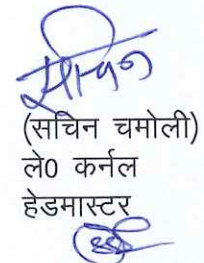 सचिन
(सचिन चमोली)
ले0 कर्नल
हेडमास्टर